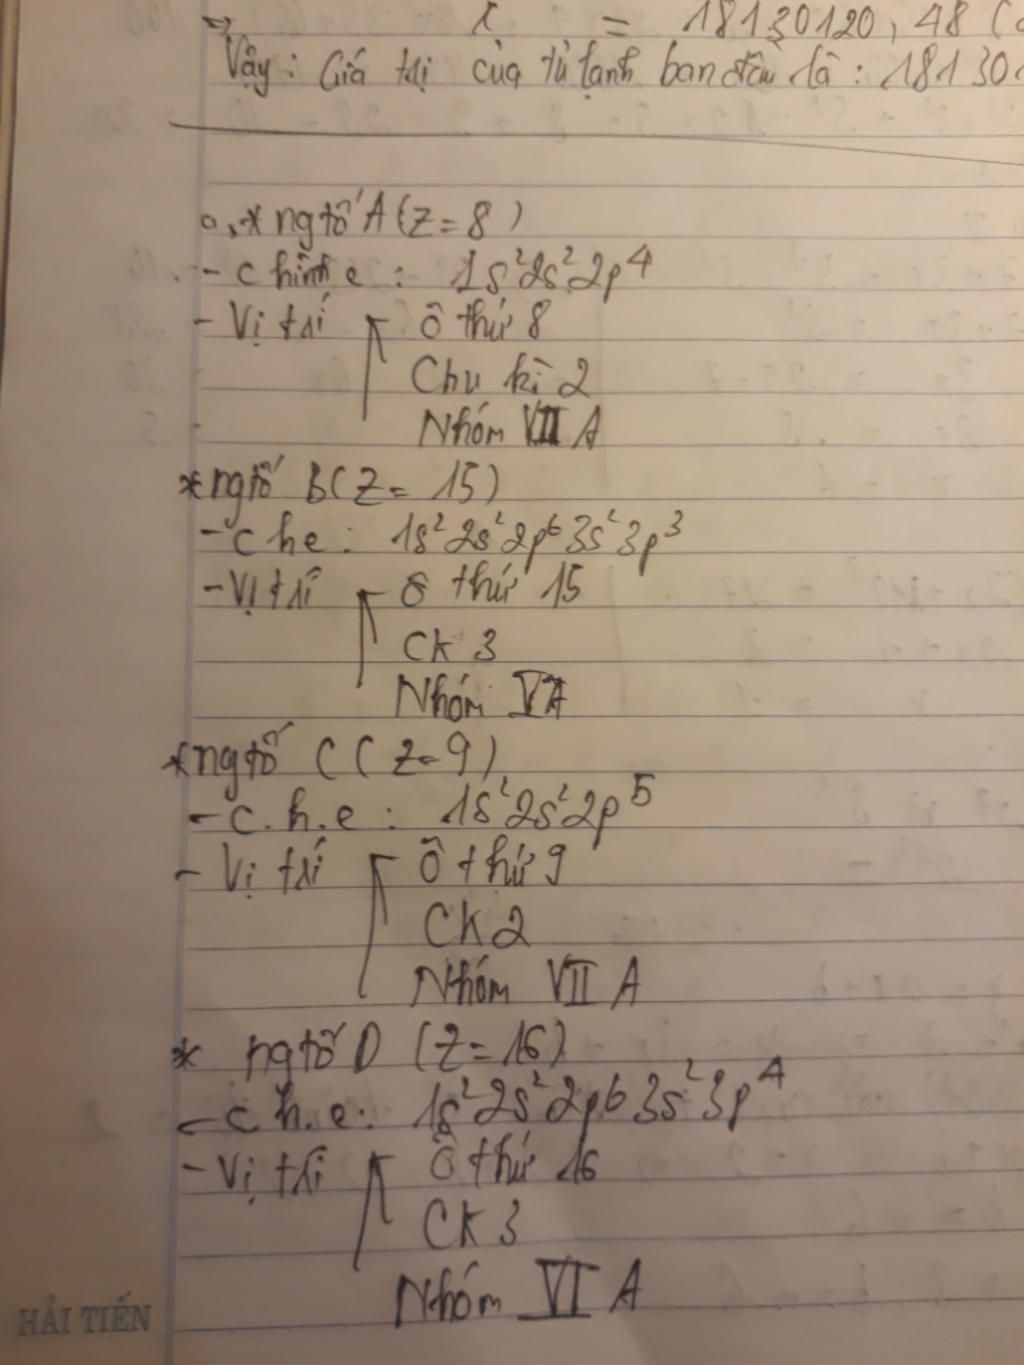 => x = 18130120,48 (
Vậy: Giá trị của tủ lạnh ban đầu là: 18130
a, * ng tố A (Z=8)
- c hình e: 1s²2s²2p⁴
- Vị trí Ô thứ 8
Chu kì 2
Nhóm VII A
* ng tố B (Z= 15)
- c h e: 1s²2s²2p⁶3s²3p³
- Vị trí Ô thứ 15
CK 3
Nhóm VA
* ng tố C (Z=9)
- c.h.e: 1s²2s²2p⁵
- Vị trí Ô thứ 9
CK 2
Nhóm VII A
* ng tố D (Z=16)
- c h.e: 1s²2s²2p⁶3s²3p⁴
- Vị trí Ô thứ 16
CK 3
Nhóm VI A
HẢI TIẾN